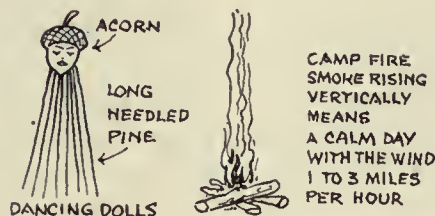 ACORN
LONG
NEEDLED
PINE
DANCING DOLLS
CAMP FIRE
SMOKE RISING
VERTICALLY
MEANS
A CALM DAY
WITH THE WIND
1 TO 3 MILES
PER HOUR